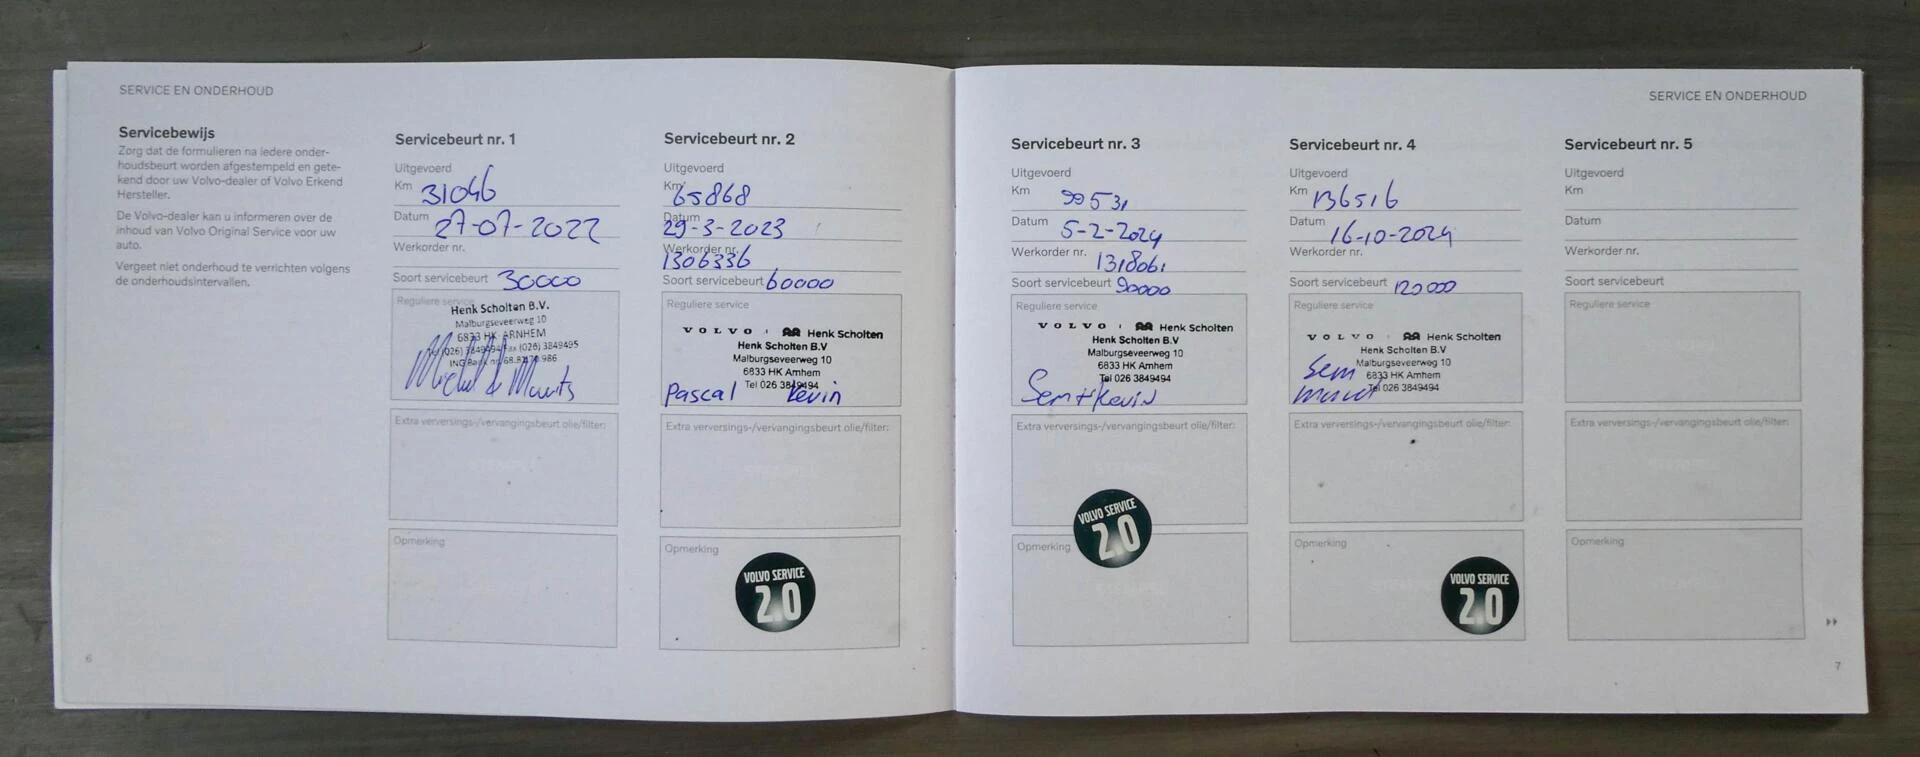 SERVICE EN ONDERHOUD
Servicebewijs
Zorg dat de formulieren na iedere onder-
houdsbeurt worden afgestempeld en gete-
kend door uw Volvo-dealer of Volvo Erkend
Hersteller.
De Volvo-dealer kan u informeren over de
inhoud van Volvo Original Service voor uw
auto.
Vergeet niet onderhoud te verrichten volgens
de onderhoudsintervallen.
6
Servicebeurt nr. 1
Uitgevoerd
Km 31046
Datum 27-07-2022
Werkorder nr.
Soort servicebeurt 30000
Reguliere service
Henk Scholten B.V.
Malburgseveerweg 10
6833 HK ARNHEM
Tel (026) 3849494 Fax (026) 3849495
ING Bank nr.
Extra verversings-/vervangingsbeurt olie/filter:
Opmerking
Servicebeurt nr. 2
Uitgevoerd
Km 65868
Datum 29-3-2023
Werkorder nr. 1306336
Soort servicebeurt 60000
Reguliere service
VOLVO Henk Scholten
Henk Scholten B.V
Malburgseveerweg 10
6833 HK Arnhem
Tel 026 3849494
Pascal Kevin
Extra verversings-/vervangingsbeurt olie/filter:
Opmerking
VOLVO SERVICE
2.0
SERVICE EN ONDERHOUD
Servicebeurt nr. 3
Uitgevoerd
Km 99531
Datum 5-2-2024
Werkorder nr. 1318061
Soort servicebeurt 90000
Reguliere service
VOLVO Henk Scholten
Henk Scholten B.V
Malburgseveerweg 10
6833 HK Arnhem
Tel 026 3849494
Sem + Kevin
Extra verversings-/vervangingsbeurt olie/filter:
STEMPEL
VOLVO SERVICE
2.0
Opmerking
Servicebeurt nr. 4
Uitgevoerd
Km 136516
Datum 16-10-2024
Werkorder nr.
Soort servicebeurt 120000
Reguliere service
VOLVO Henk Scholten
Henk Scholten B.V
Malburgseveerweg 10
6833 HK Arnhem
Tel 026 3849494
Sem
Extra verversings-/vervangingsbeurt olie/filter:
Opmerking
VOLVO SERVICE
2.0
Servicebeurt nr. 5
Uitgevoerd
Km
Datum
Werkorder nr.
Soort servicebeurt
Reguliere service
Extra verversings-/vervangingsbeurt olie/filter:
Opmerking
7